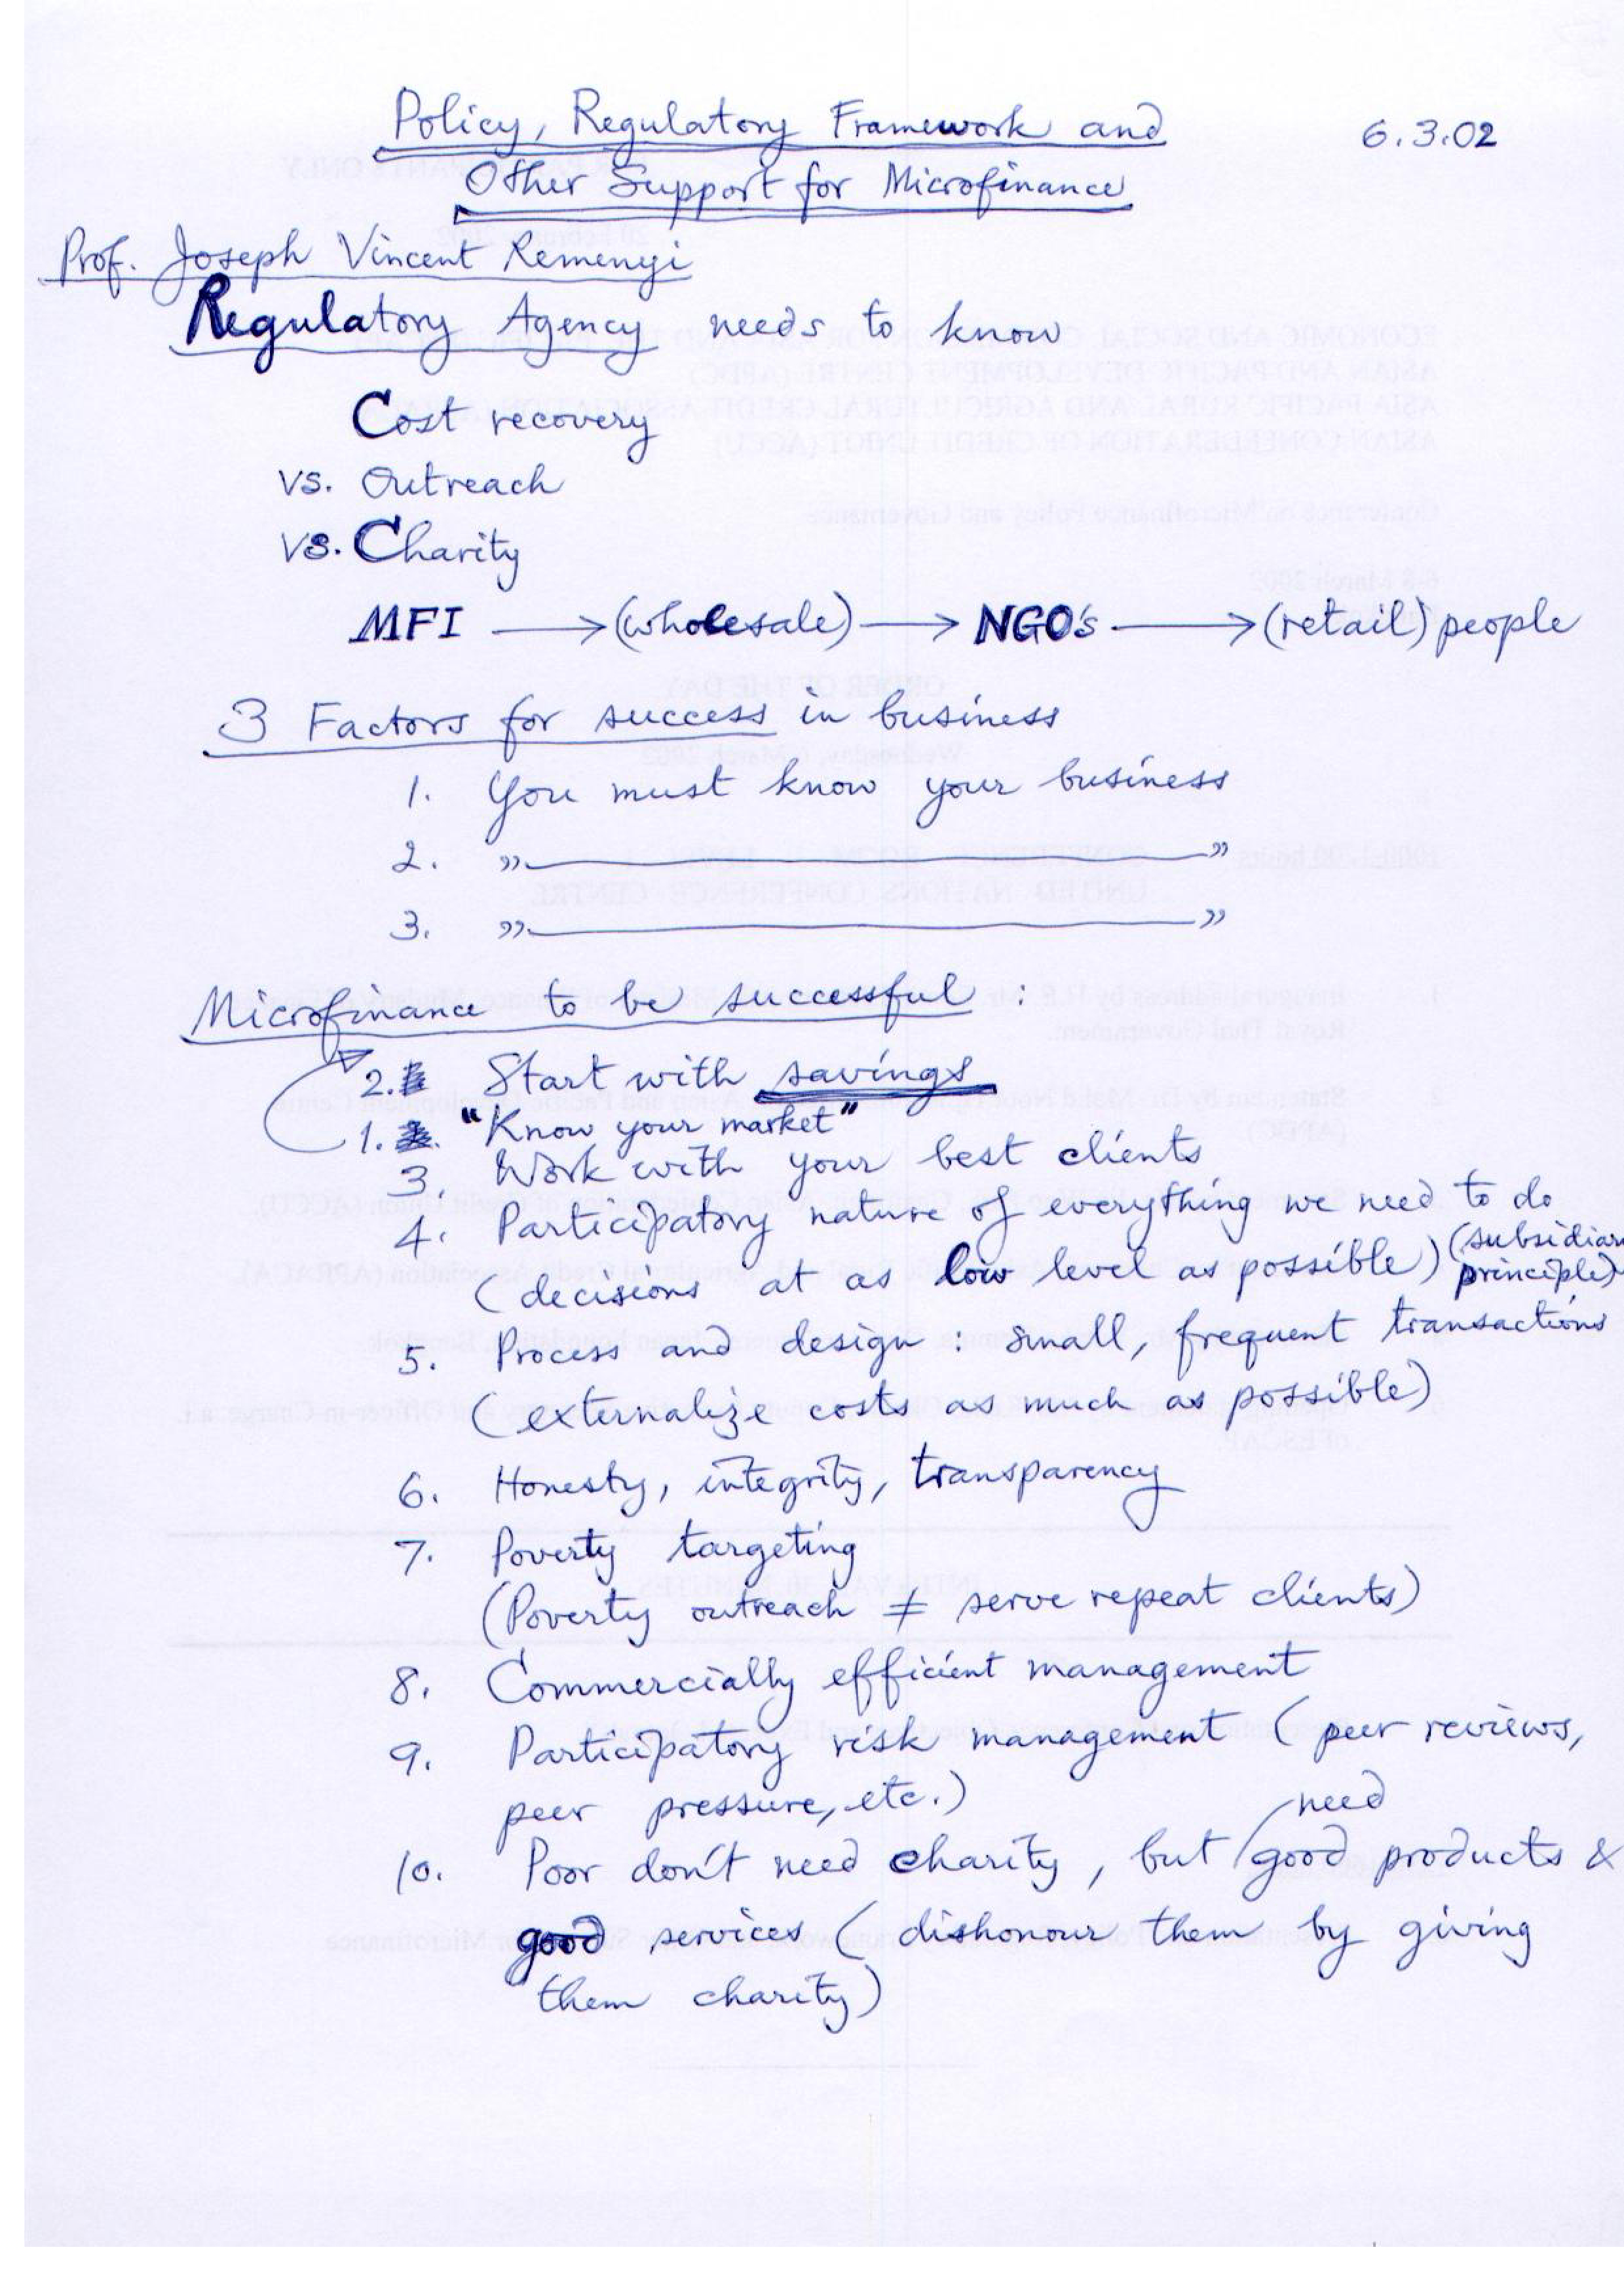 Policy, Regulatory Framework and
6.3.02
Other Support for Microfinance
Prof. Joseph Vincent Remenyi
Regulatory Agency needs to know
Cost recovery
vs. Outreach
vs. Charity
MFI → (wholesale) → NGO's → (retail) people
3 Factors for success in business
1. You must know your business
2. " ——— "
3. " ——— "
Microfinance to be successful :
2. Start with savings
1. "Know your market"
3. Work with your best clients
4. Participatory nature of everything we need to do
(decisions at as low level as possible) (subsidiar
principle)
5. Process and design : small, frequent transactions
(externalize costs as much as possible)
6. Honesty, integrity, transparency
7. Poverty targeting
(Poverty outreach ≠ serve repeat clients)
8. Commercially efficient management
9. Participatory risk management (peer reviews,
peer pressure, etc.)
need
10. Poor don't need charity, but / good products &
good services (dishonour them by giving
them charity)